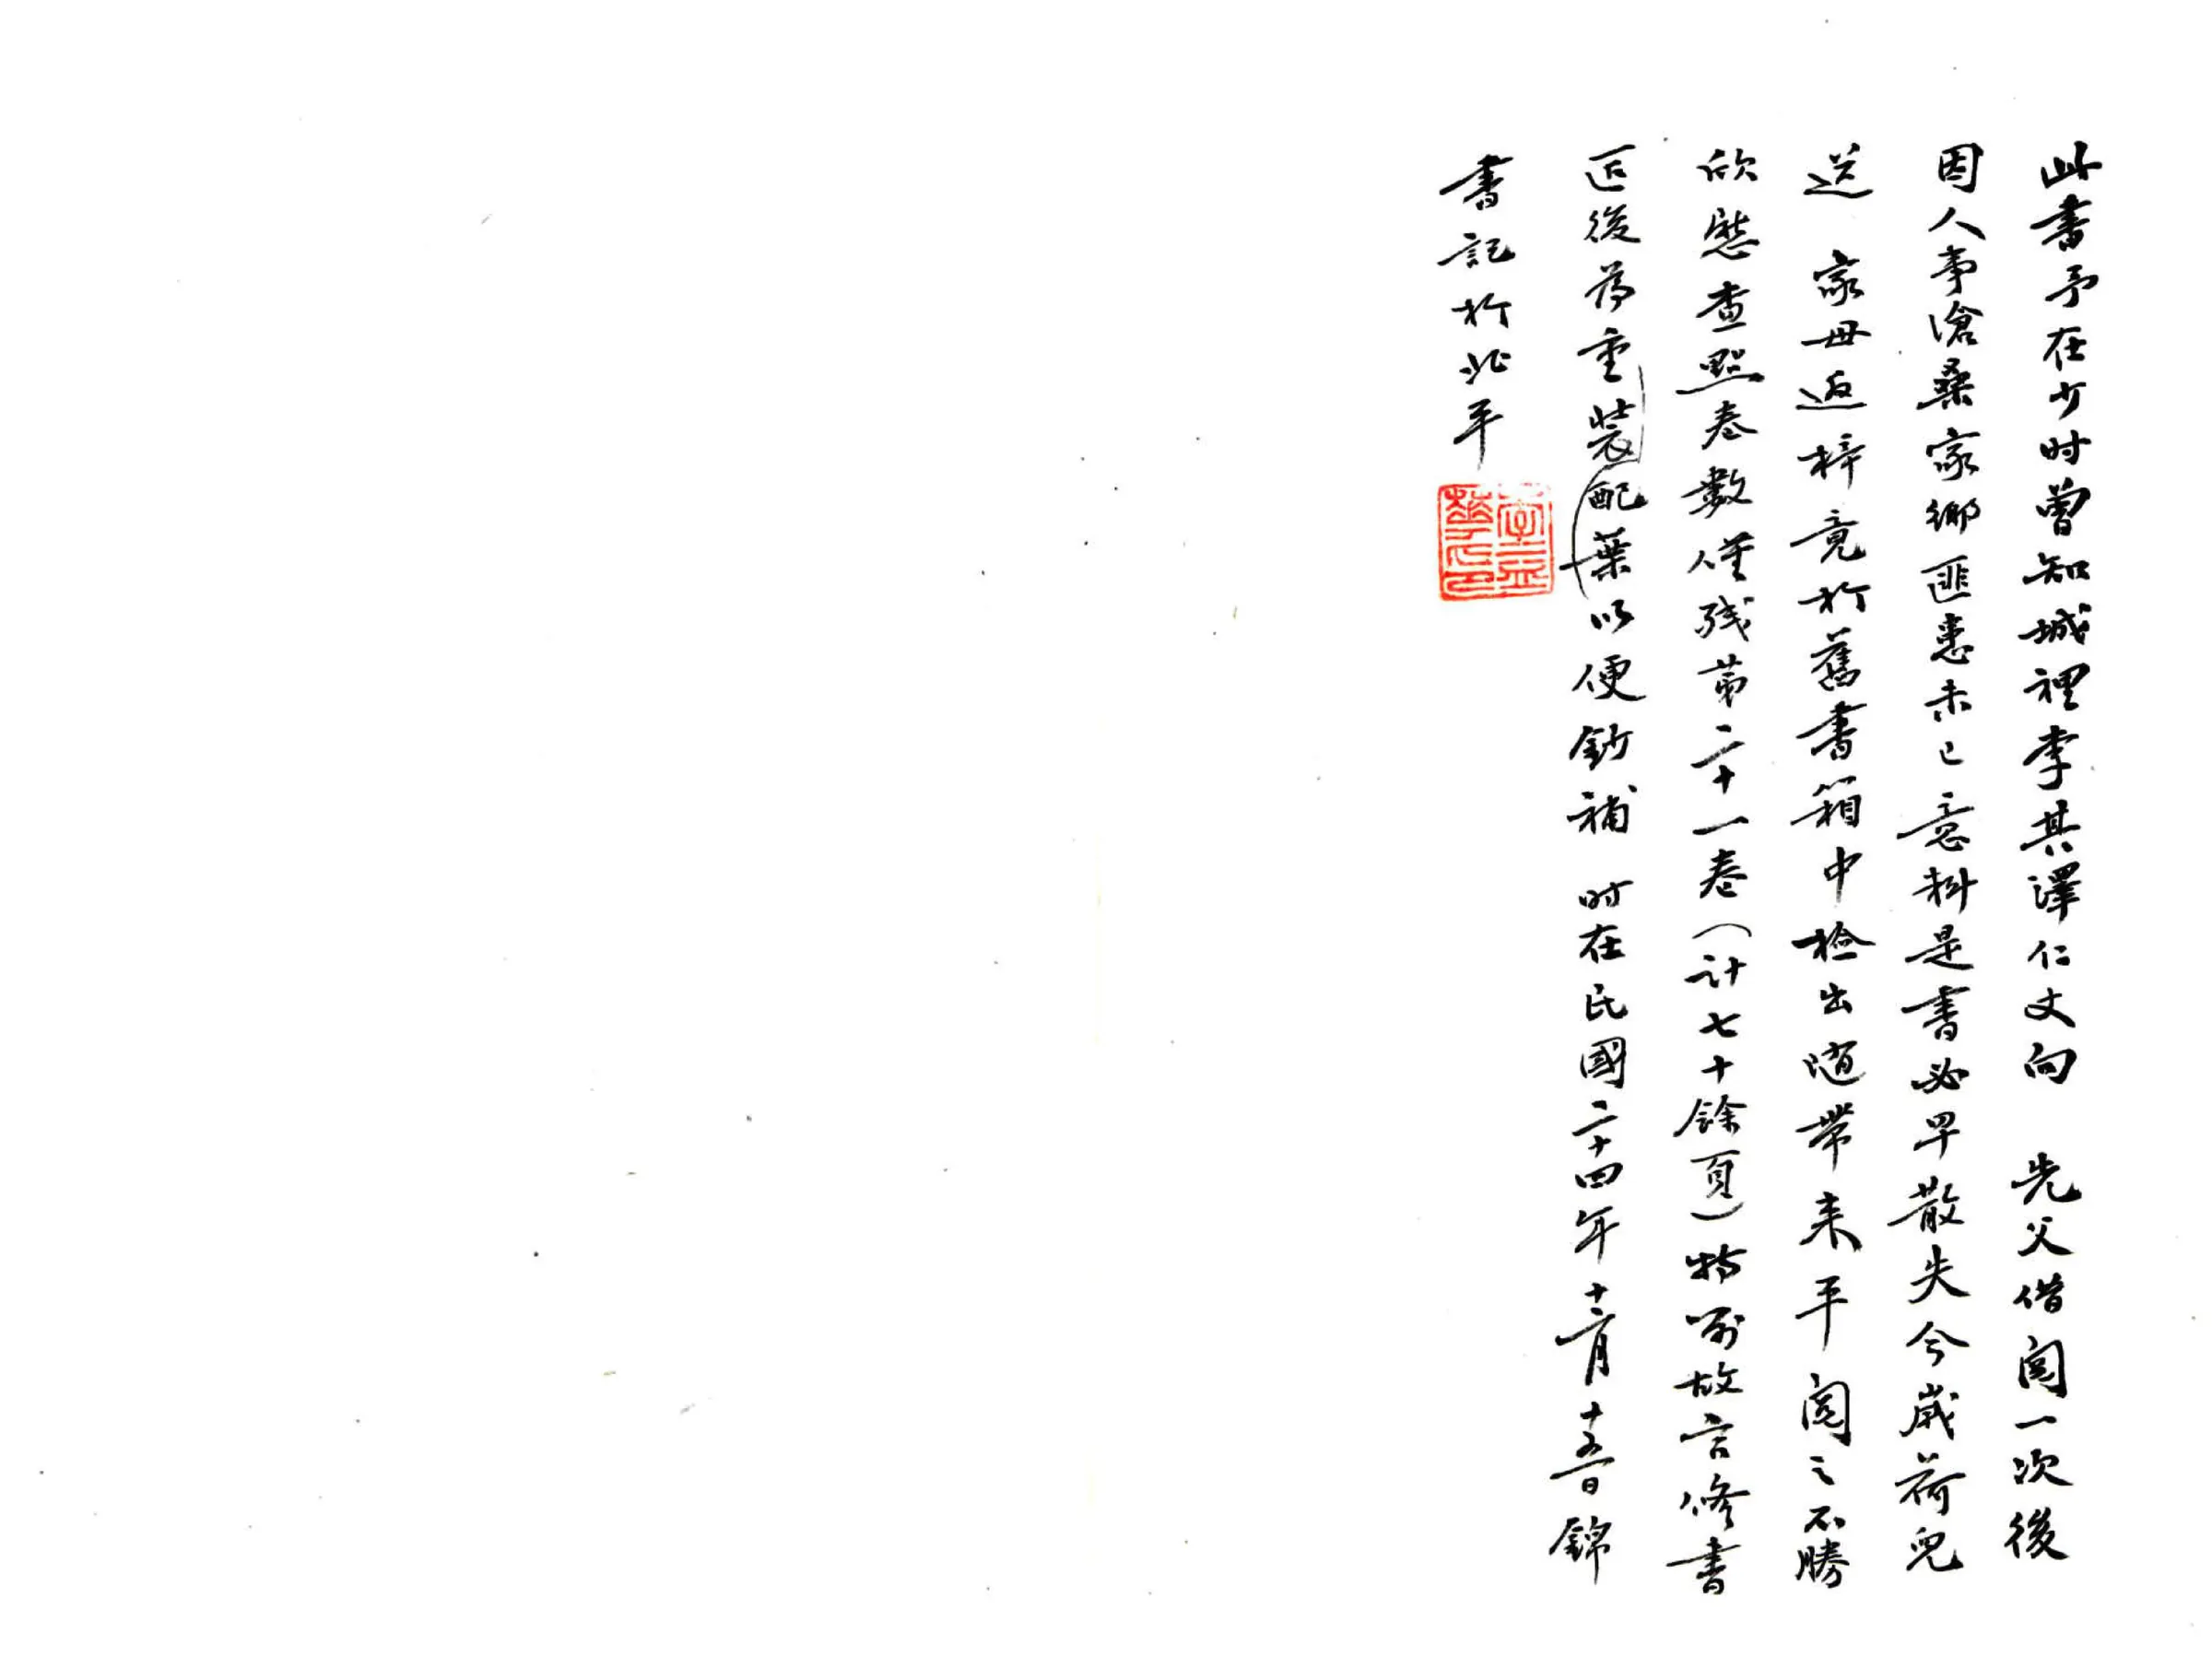 此書予在少时曾知城裡李其澤仁丈向　先父借阅一次後
因人事滄桑家鄉匪患未已意料是書必早散失今歲荷兒
送　家母返梓竟於舊書箱中檢出随帶来平阅之不勝
欣慰查點卷數僅残第二十一卷（计七十餘頁）特嘱故宫修書
匠後為重裝配葉以便鈔補　时在民國二十四年十二月十五日錦
書記於北平